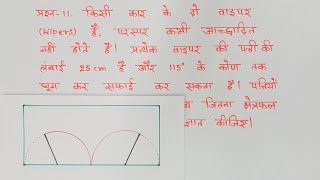 प्रश्न-11. किसी कार के दो वाइपर
(Wipers) हैं, परस्पर कभी आच्छादित
नहीं होते हैं। प्रत्येक वाइपर की पत्ती की
लंबाई 25cm है और 115° के कोण तक
घूम कर सफाई कर सकता है। पत्तियों
जितना क्षेत्रफल
ज्ञात कीजिए।